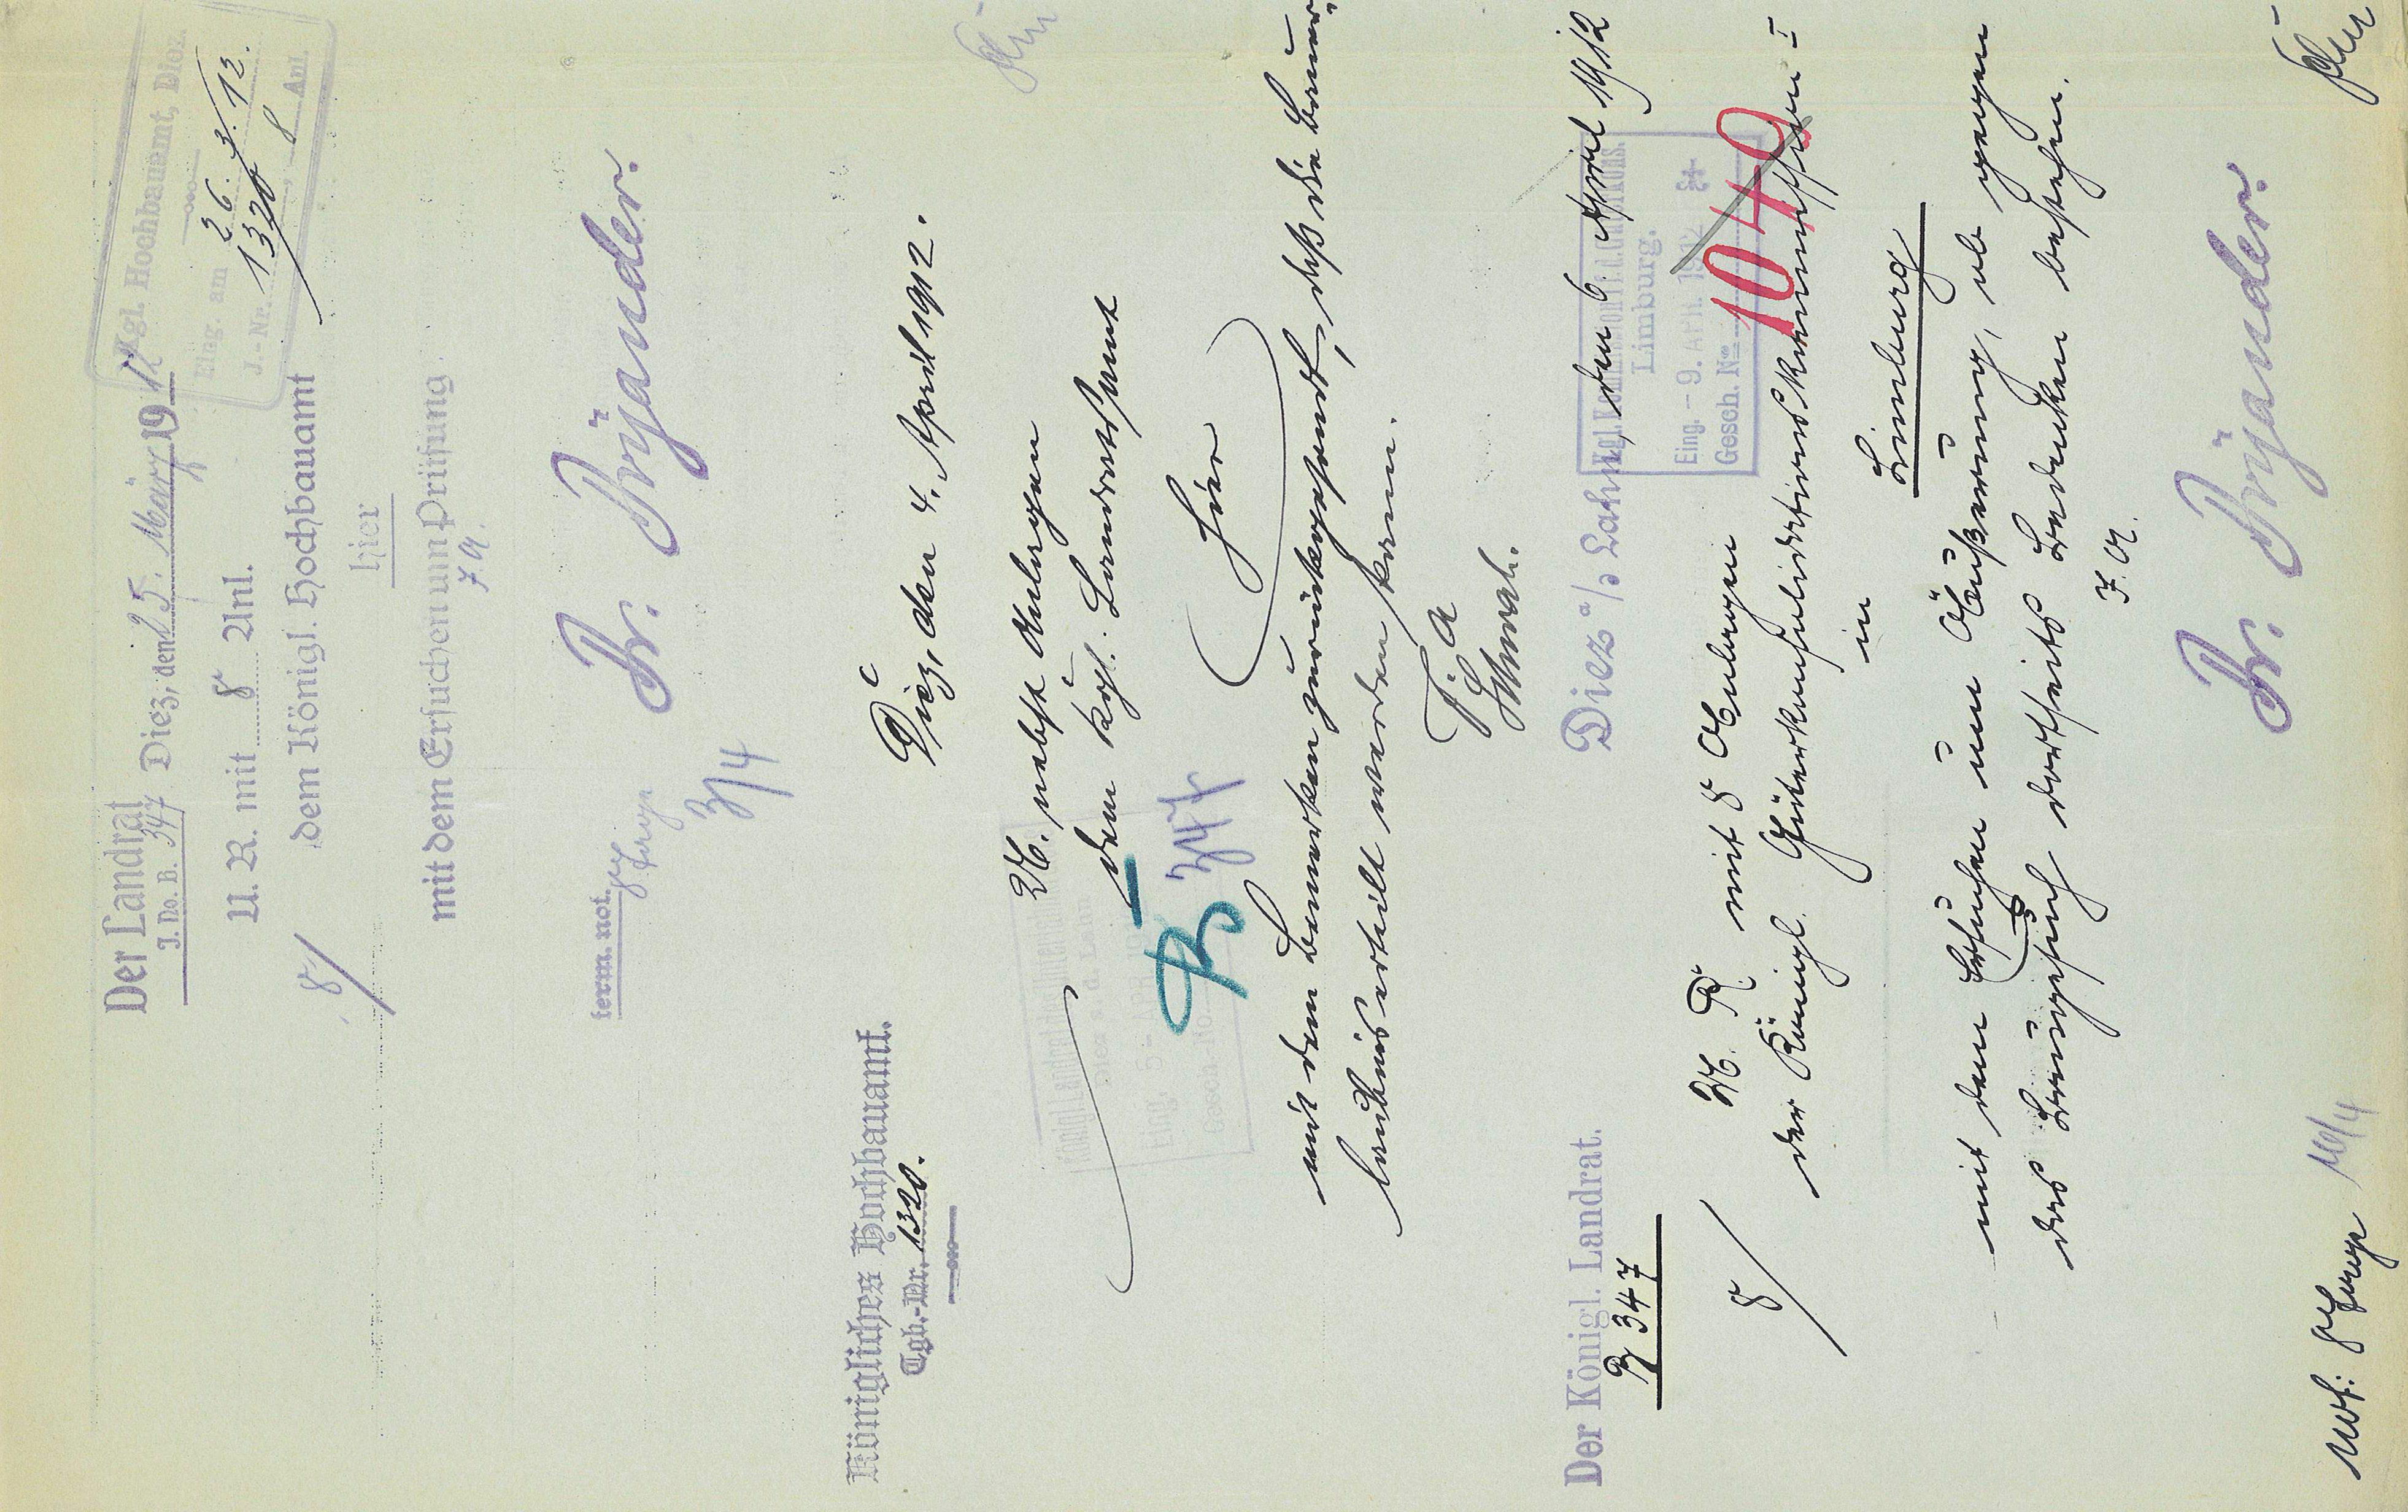 Der Landrat
J. No. B. 347 Diez, den 25. März 1912
Kgl. Hochbauamt, Diez.
Eing. am 26. 3. 12.
J.-Nr. 1320, 8 Anl.
U. R. mit 8 Anl.
dem Königl. Hochbauamt
hier
8/
mit dem Ersuchen um Prüfung
J. A.
Dr. Brjander.
term. not.
3/4
Königliches Hochbauamt.
Tgb.-Nr. 1320.
Diez, den 4. April 1912.
U. nebst Anlagen
dem Kgl. Landratsamt
Hier
Eing. 5 - APR. 1912
B 347
mit dem Bemerken zurückgesandt, daß die Bauer-
laubnis erteilt werden kann.
I. A
Der Königl. Landrat.
B 347
Diez a/d Lahn, den 6 April 1912
Limburg.
Eing. - 9. APR. 1912
Gesch. No
1040
U. R mit 8 Anlagen
8/
der Königl. Güterkonsolidationskommission I
in
Limburg
mit dem Ersuchen um Äußerung, ob gegen
das Baugesuch dortseits Bedenken bestehen.
J. A.
Dr. Brjander.
10/4